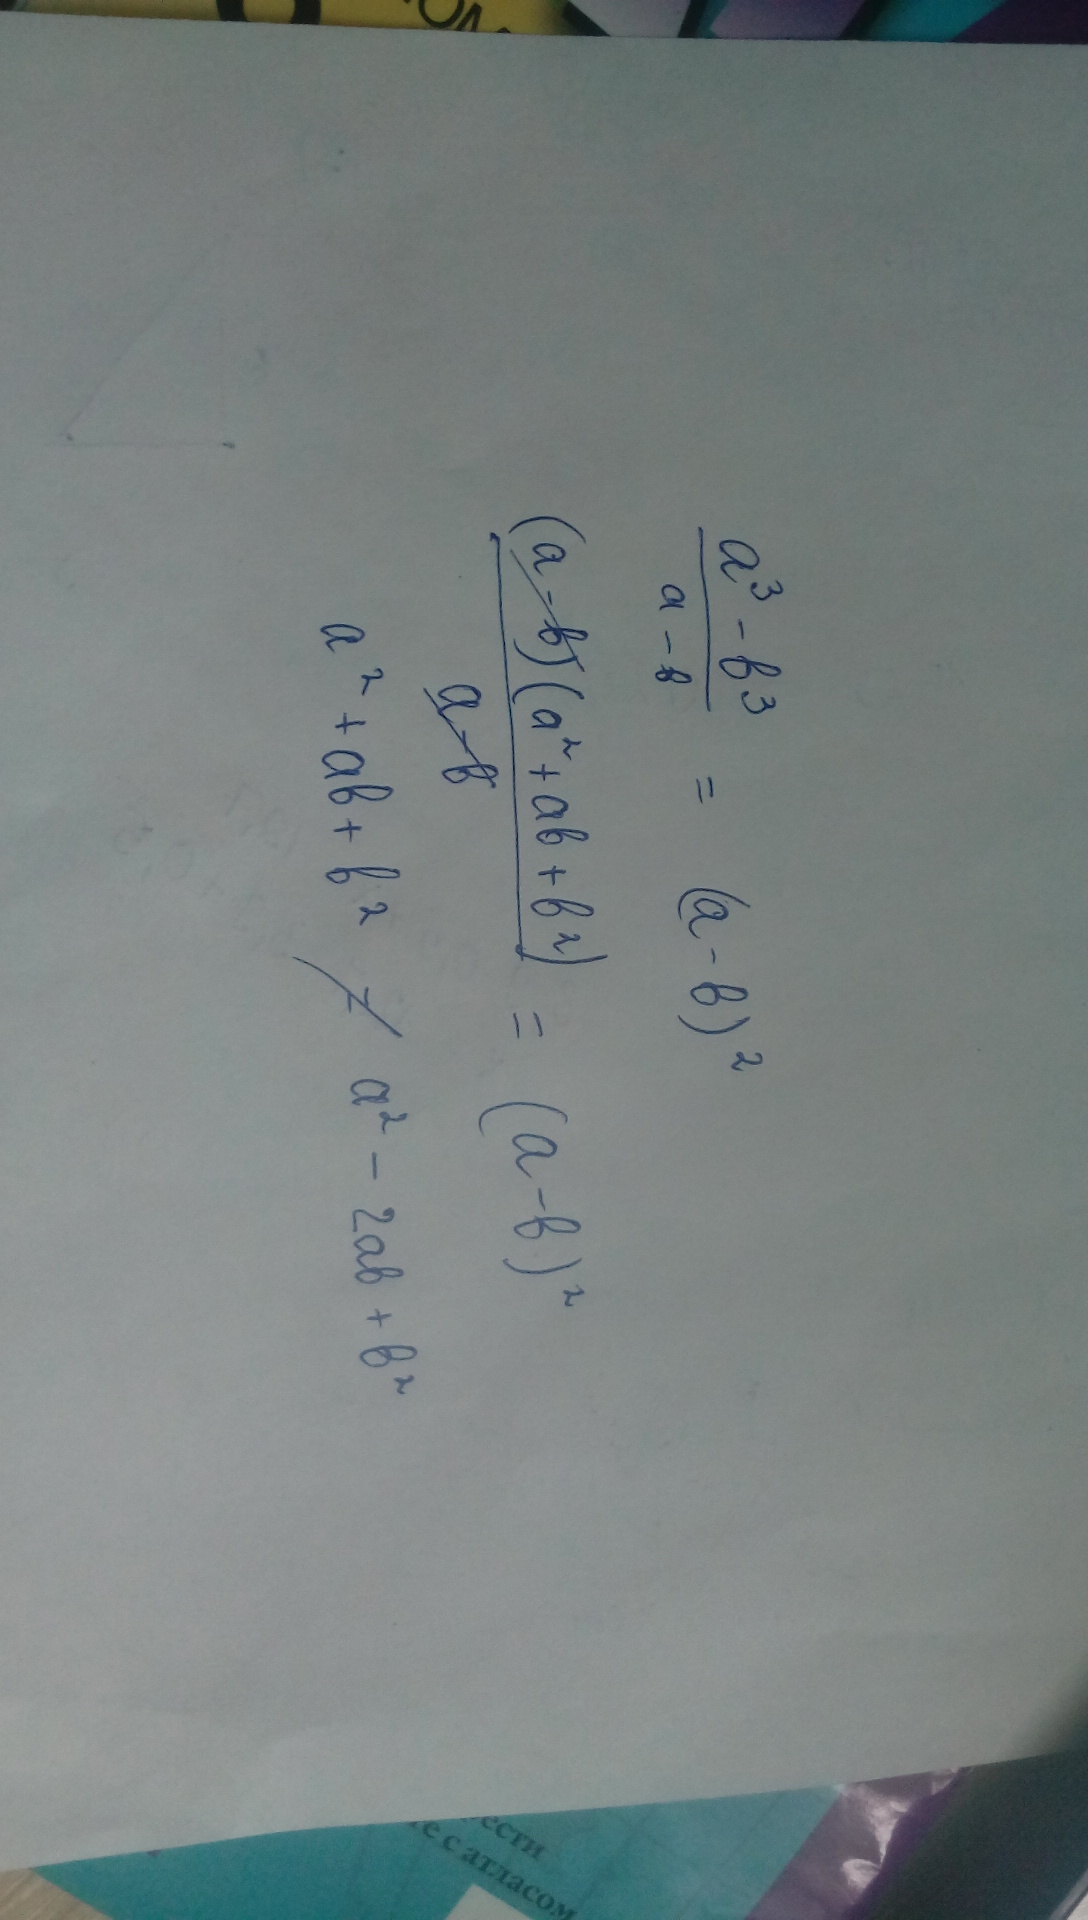 a³ - b³ / a - b = (a - b)²
(a - b)(a² + ab + b²) / a - b = (a - b)²
a² + ab + b² ≠ a² - 2ab + b²
ести
те с атласом